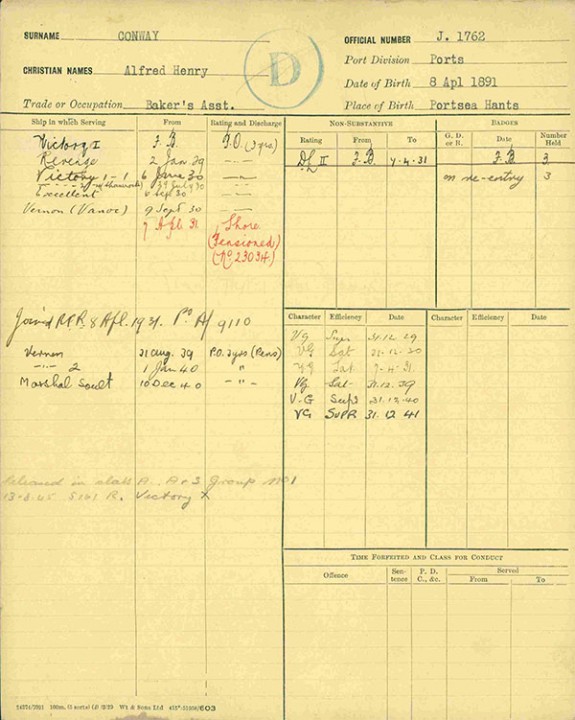 SURNAME CONWAY
CHRISTIAN NAMES Alfred Henry
Trade or Occupation Baker's Asst.
D
OFFICIAL NUMBER J. 1762
Port Division Ports
Date of Birth 8 Apl 1891
Place of Birth Portsea Hants
Ship in which Serving From Rating and Discharge
Victory I F.B. P.O. (3yrs)
Revenge 2 Jan 29 -"-
Victory 1-1 6 June 30 -"-
29 July 30
Excellent 6 Sept 30
Vernon ( 9 Sept 30 -"-
7 Apl 31 Shore
(Pensioned)
(No. 23034.)
Joined R.F.R. 8 Apl. 1931. Po A/ 9110
Vernon 31 Aug. 39 P.O. 3yrs (Pens)
-"- 2 1 Jan 40 "
Marshal Soult 10 Dec 40 -"-
Released in class A. Group No 1
13-8-45 R. Victory X
NON-SUBSTANTIVE
Rating From To
II F.B. 7.4.31
BADGES
G. D. or R. Date Number Held
F.B. 3
on re-entry 3
Character Efficiency Date Character Efficiency Date
VG Supr 31.12.29
VG Sat 31.12.30
VG Sat 7.4.31.
VG Sat 31.12.39
V.G Supr 31.12.40
VG SUPR 31.12.41
TIME FORFEITED AND CLASS FOR CONDUCT
Offence Sentence P. D. C., &c. Served
From To
Wt & Sons Ltd 603